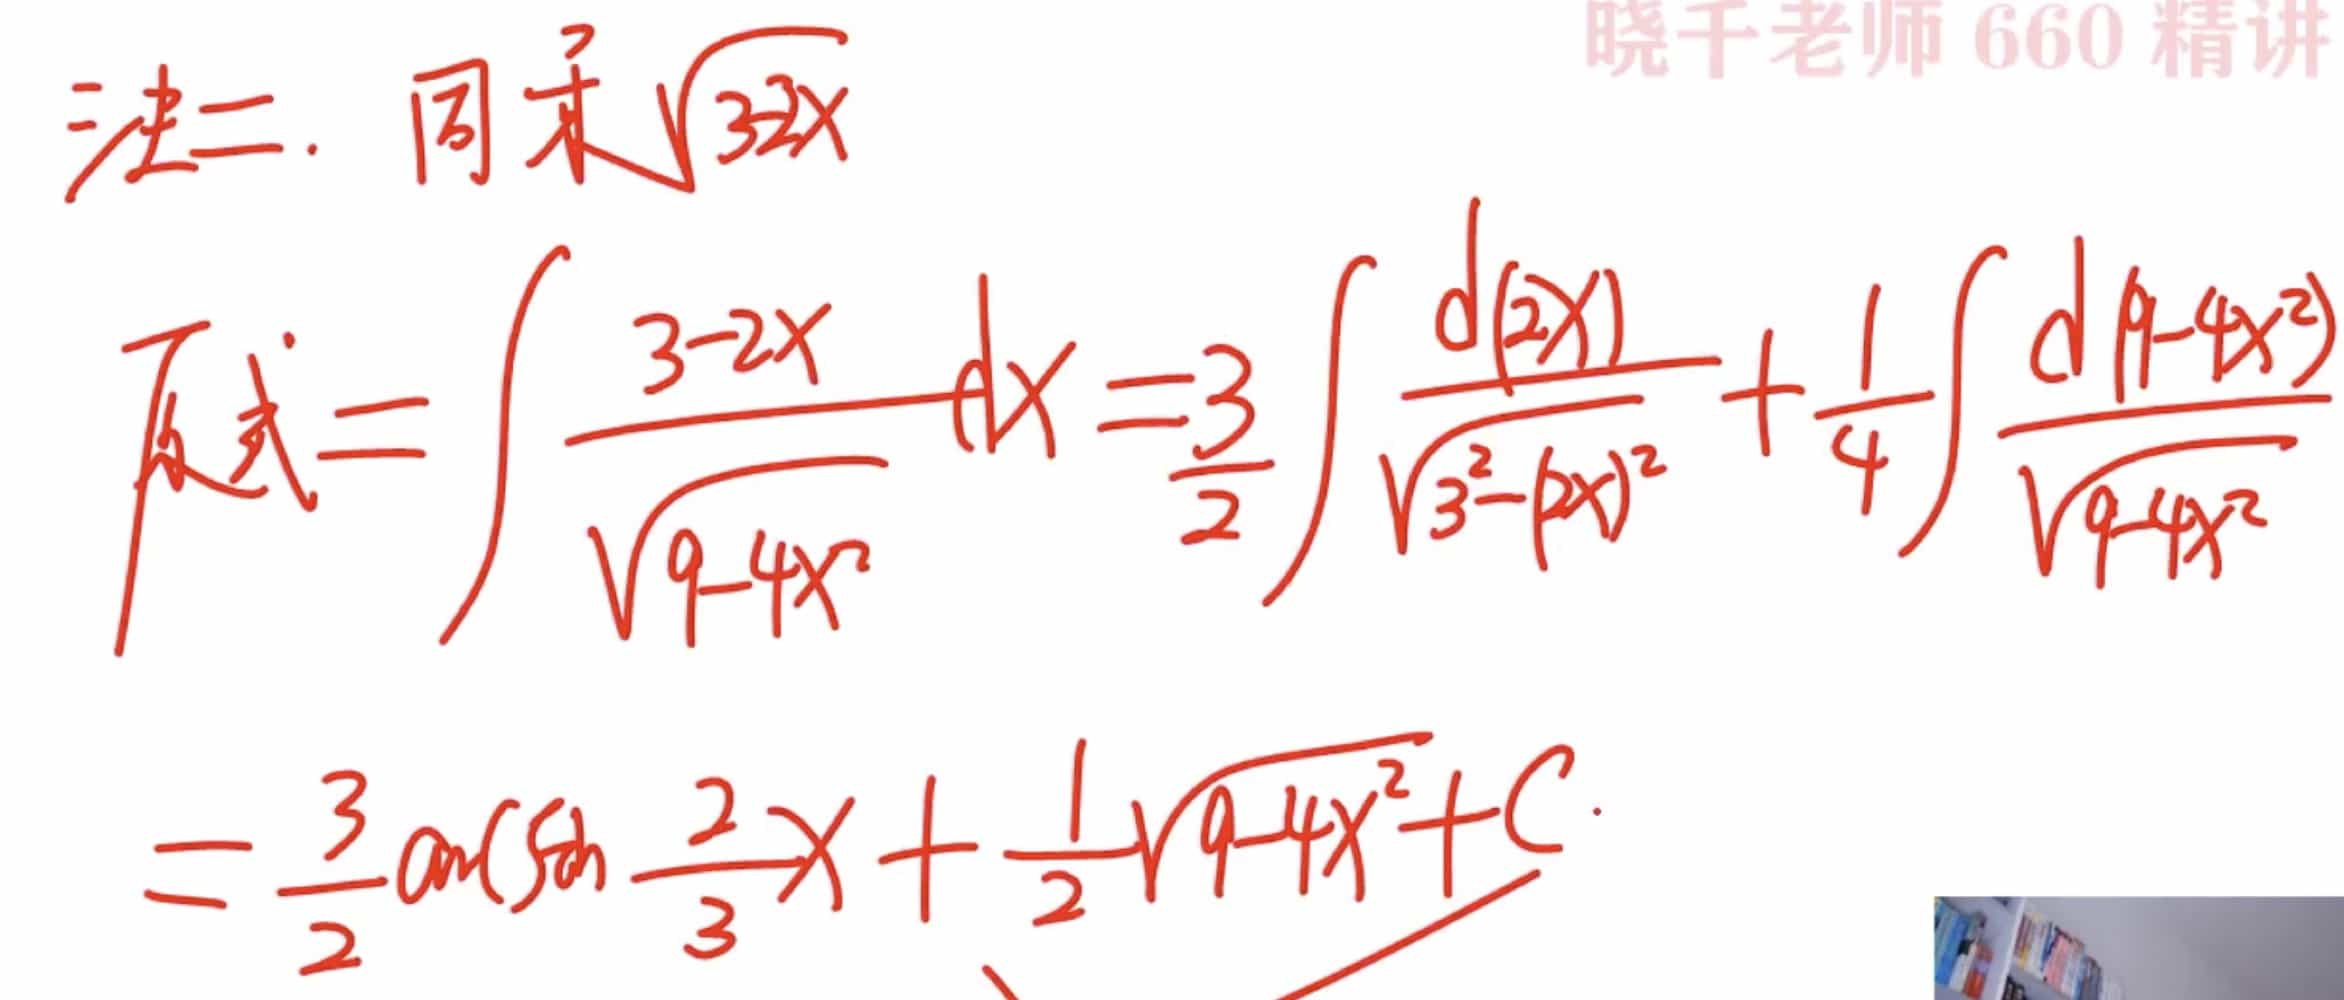 晓千老师 660 精讲
法二. 同乘√(3-2x)
原式 = ∫ (3-2x)/√(9-4x²) dx = 3/2 ∫ d(2x)/√(3²-(2x)²) + 1/4 ∫ d(9-4x²)/√(9-4x²)
= 3/2 arcsin 2/3 x + 1/2 √(9-4x²) + C.